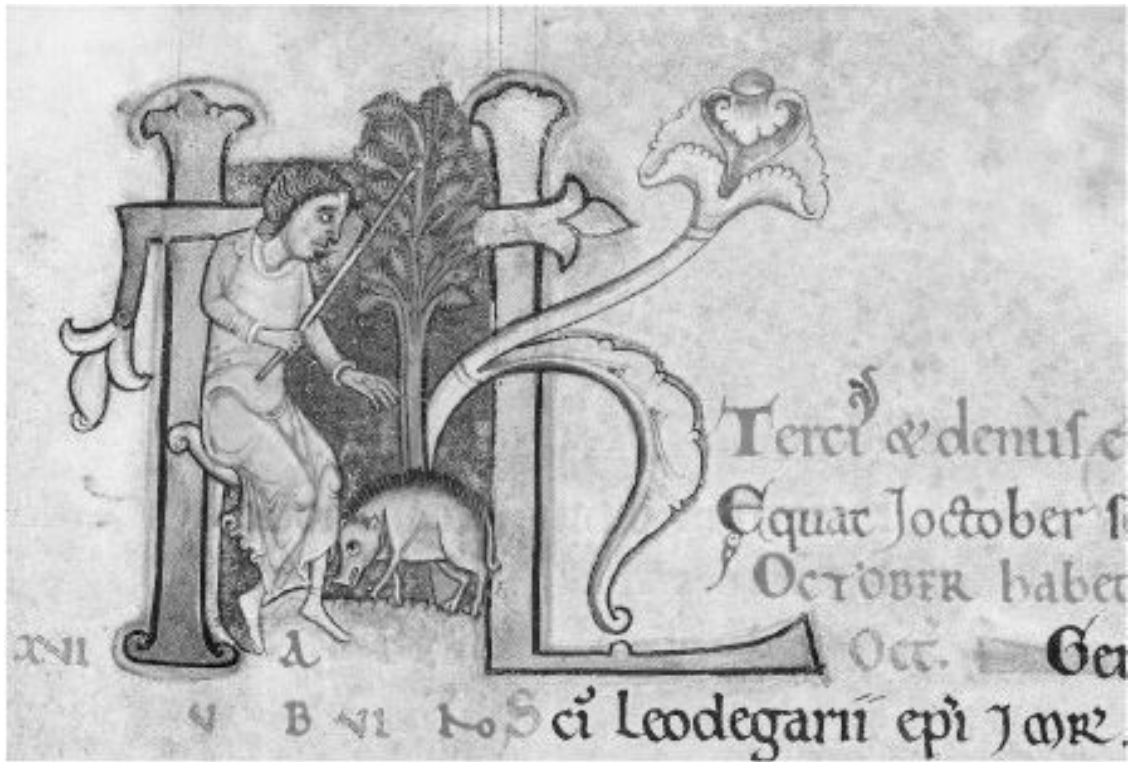 KL
Terci⁹ & denuſ e
Equat Joctober ſe
OCTOBER habet
XVI A Oct. Ger
V B VI No Sci Leodegarii ep̄i ⁊ mr̄.